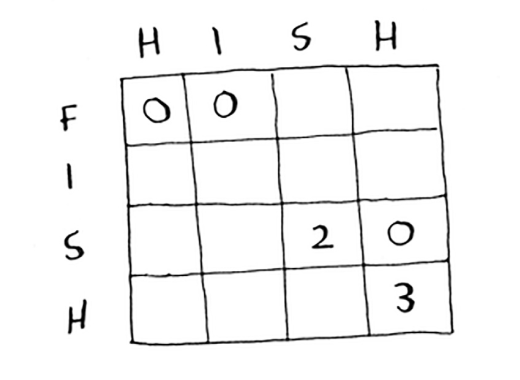 H I S H
F 0 0
I
S 2 0
H 3